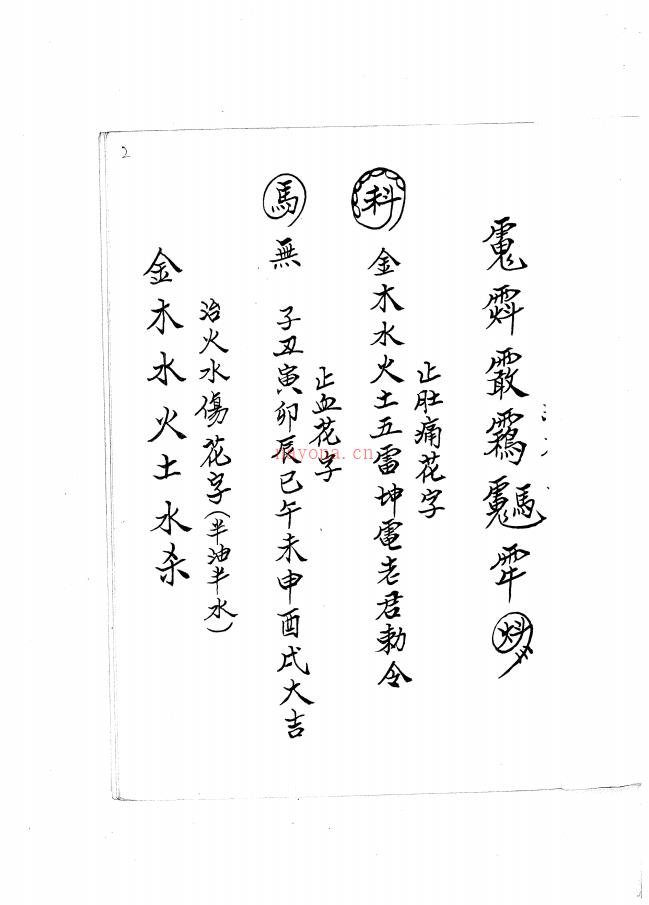 止肚痛花字
金木水火土五雷坤電老君勅令
止血花字
馬無 子丑寅卯辰巳午未申酉戌大吉
治火水傷花字(半油半水)
金木水火土水杀
2
nayona.cn